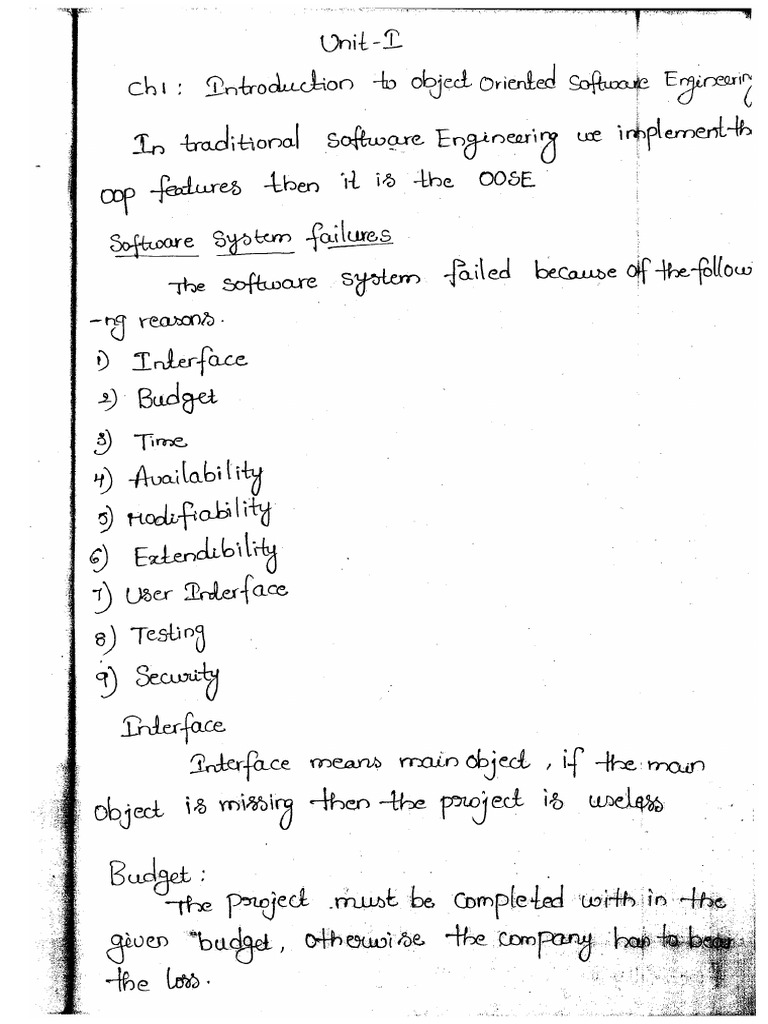 Unit-I
Ch1: Introduction to object Oriented Software Engineerin
In traditional Software Engineering we implement th
oop features then it is the OOSE
Software System failures
The software system failed because of the follow
-ng reasons.
1) Interface
2) Budget
3) Time
4) Availability
5) Modifiability
6) Extendibility
7) User Interface
8) Testing
9) Security
Interface
Interface means main object, if the main
object is missing then the project is useless
Budget:
The project must be completed with in the
given budget, otherwise the company has to bear
the loss.